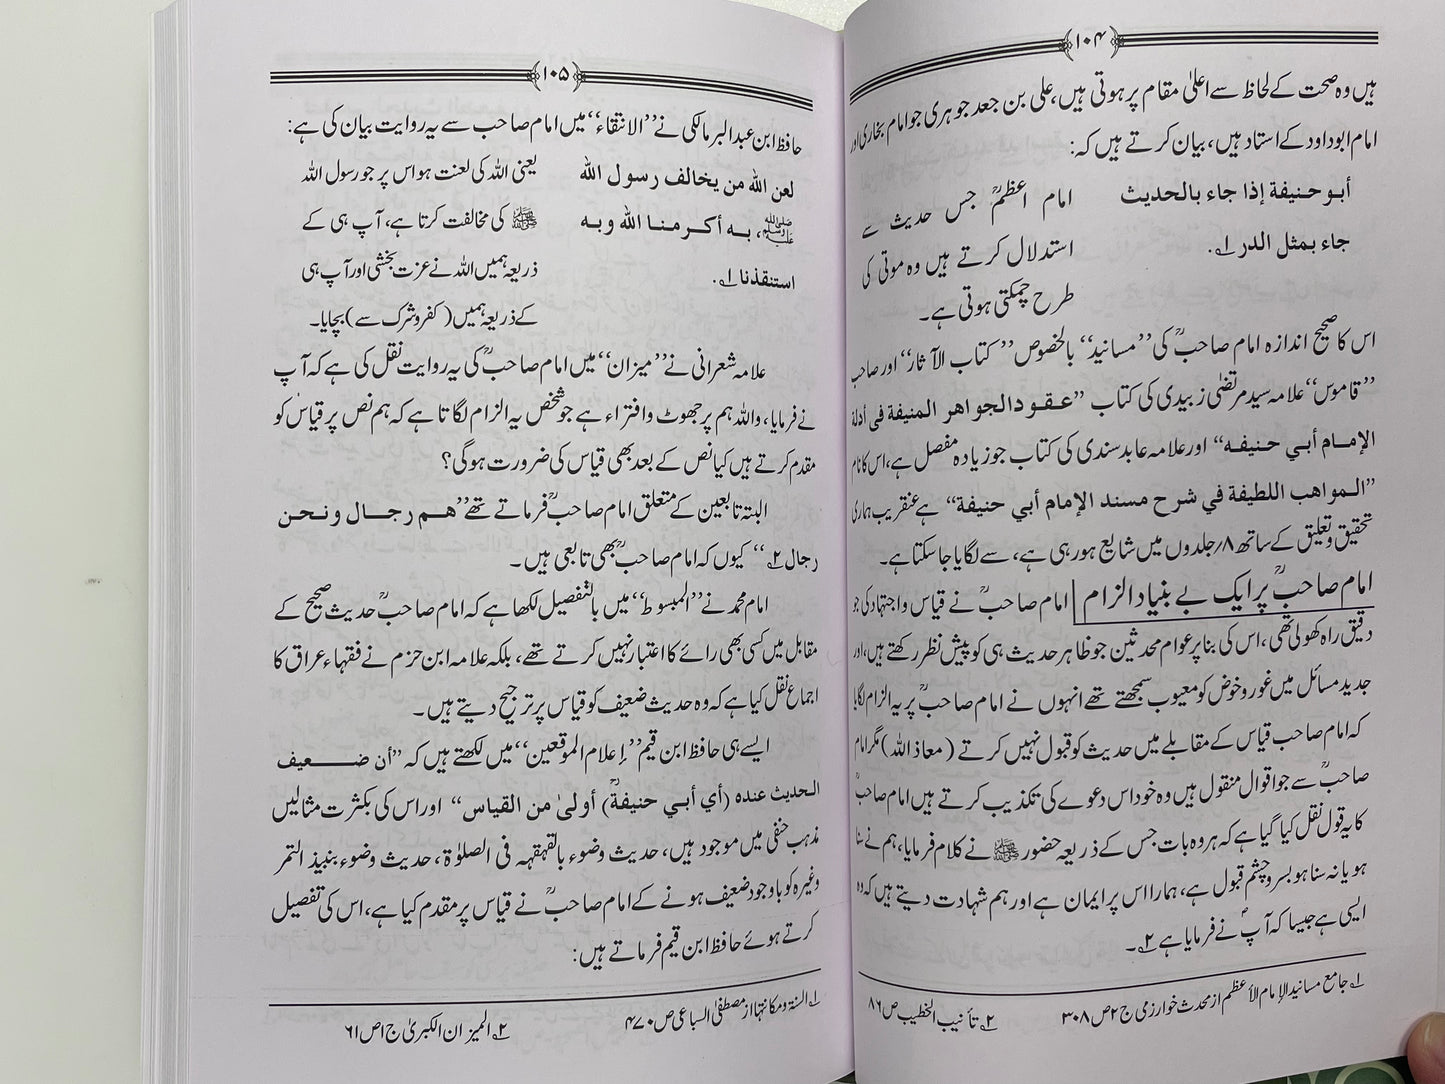 ﴿۱۰۴﴾
ہیں وہ صحت کے لحاظ سے اعلیٰ مقام پر ہوتی ہیں، علی بن جعد جوہری جو امام بخاری اور
امام ابوداود کے استاد ہیں، بیان کرتے ہیں کہ:
أبو حنيفة إذا جاء بالحديث
جاء بمثل الدر ۱؎.
امام اعظمؒ جس حدیث سے
استدلال کرتے ہیں وہ موتی کی
طرح چمکتی ہوتی ہے۔
اس کا صحیح اندازہ امام صاحبؒ کی ”مسانید“ بالخصوص ”کتاب الآثار“ اور صاحب
”قاموس“ علامہ سید مرتضیٰ زبیدی کی کتاب ”عقود الجواهر المنيفة في أدلة
الإمام أبي حنيفه“ اور علامہ عابد سندی کی کتاب جو زیادہ مفصل ہے، اس کا نام
”المواهب اللطيفة في شرح مسند الإمام أبي حنيفة“ ہے عنقریب ہماری
تحقیق و تعلیق کے ساتھ ۸؍جلدوں میں شایع ہو رہی ہے، سے لگایا جا سکتا ہے۔
امام صاحبؒ پر ایک بے بنیاد الزام امام صاحبؒ نے قیاس و اجتہاد کی جو
دقیق راہ کھولی تھی، اس کی بنا پر عوام محدثین جو ظاہر حدیث ہی کو پیش نظر رکھتے ہیں، اور
جدید مسائل میں غور و خوض کو معیوب سمجھتے تھے انہوں نے امام صاحبؒ پر یہ الزام لگایا
کہ امام صاحب قیاس کے مقابلے میں حدیث کو قبول نہیں کرتے (معاذ اللہ) مگر امام
صاحبؒ سے جو اقوال منقول ہیں وہ خود اس دعوے کی تکذیب کرتے ہیں امام صاحبؒ
کا یہ قول نقل کیا گیا ہے کہ ہر وہ بات جس کے ذریعہ حضور ﷺ نے کلام فرمایا، ہم نے سنا
ہو یا نہ سنا ہو بسر و چشم قبول ہے، ہمارا اس پر ایمان ہے اور ہم شہادت دیتے ہیں کہ وہ
ایسی ہے جیسا کہ آپؐ نے فرمایا ہے ۲؎۔
۱؎ جامع مسانید الإمام الأعظم از محدث خوارزمی ج ۲ ص ۳۰۸ ۲؎ تأنیب الخطیب ص ۸۶
﴿۱۰۵﴾
حافظ ابن عبد البر مالکی نے ”الانتقاء“ میں امام صاحب سے یہ روایت بیان کی ہے:
لعن الله من يخالف رسول الله
ﷺ، به أكرمنا الله وبه
استنقذنا ۱؎.
یعنی اللہ کی لعنت ہو اس پر جو رسول اللہ
ﷺ کی مخالفت کرتا ہے، آپ ہی کے
ذریعہ ہمیں اللہ نے عزت بخشی اور آپ ہی
کے ذریعہ ہمیں (کفر و شرک سے) بچایا۔
علامہ شعرانی نے ”میزان“ میں امام صاحبؒ کی یہ روایت نقل کی ہے کہ آپ
نے فرمایا، واللہ ہم پر جھوٹ وافتراء ہے جو شخص یہ الزام لگاتا ہے کہ ہم نص پر قیاس کو
مقدم کرتے ہیں کیا نص کے بعد بھی قیاس کی ضرورت ہوگی؟
البتہ تابعین کے متعلق امام صاحبؒ فرماتے تھے ”هم رجال ونحن
رجال ۲؎“ کیوں کہ امام صاحبؒ بھی تابعی ہیں۔
امام محمد نے ”المبسوط“ میں بالتفصیل لکھا ہے کہ امام صاحبؒ حدیث صحیح کے
مقابل میں کسی بھی رائے کا اعتبار نہیں کرتے تھے، بلکہ علامہ ابن حزم نے فقہاء عراق کا
اجماع نقل کیا ہے کہ وہ حدیث ضعیف کو قیاس پر ترجیح دیتے ہیں۔
ایسے ہی حافظ ابن قیم ”إعلام الموقعين“ میں لکھتے ہیں کہ ”أن ضعيف
الحديث عنده (أي أبي حنيفةؒ) أولىٰ من القياس“ اور اس کی بکثرت مثالیں
مذہب حنفی میں موجود ہیں، حدیث وضوء بالقہقہہ فی الصلوٰۃ، حدیث وضوء بنبیذ التمر
وغیرہ کو باوجود ضعیف ہونے کے امام صاحبؒ نے قیاس پر مقدم کیا ہے، اس کی تفصیل
کرتے ہوئے حافظ ابن قیم فرماتے ہیں:
۱؎ السنۃ ومکانتہا از مصطفیٰ السباعی ص ۴۷۰ ۲؎ المیزان الکبریٰ ج ۱ ص ۶۱